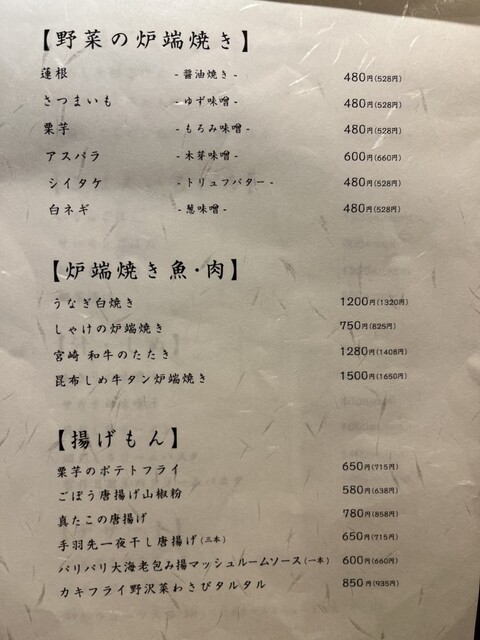 【野菜の炉端焼き】
蓮根 -醤油焼き- 480円(528円)
さつまいも -ゆず味噌- 480円(528円)
栗芋 -もろみ味噌- 480円(528円)
アスパラ -木芽味噌- 600円(660円)
シイタケ -トリュフバター- 480円(528円)
白ネギ -葱味噌- 480円(528円)
【炉端焼き魚・肉】
うなぎ白焼き 1200円(1320円)
しゃけの炉端焼き 750円(825円)
宮崎 和牛のたたき 1280円(1408円)
昆布しめ牛タン炉端焼き 1500円(1650円)
【揚げもん】
栗芋のポテトフライ 650円(715円)
ごぼう唐揚げ山椒粉 580円(638円)
真たこの唐揚げ 780円(858円)
手羽先一夜干し唐揚げ(三本) 650円(715円)
パリパリ大海老包み揚マッシュルームソース(一本) 600円(660円)
カキフライ野沢菜わさびタルタル 850円(935円)